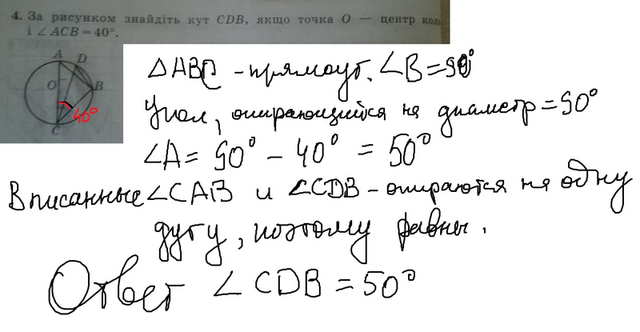 4. За рисунком знайдіть кут CDB, якщо точка O — центр кол
і ∠ACB=40°.
A
D
O
B
C
40°
△ABC - прямоуг. ∠B=90°
Угол, опирающийся на диаметр=90°
∠A= 90° - 40° = 50°
Вписанные ∠CAB и ∠CDB - опираются на одну
дугу, поэтому равны.
Ответ ∠CDB = 50°